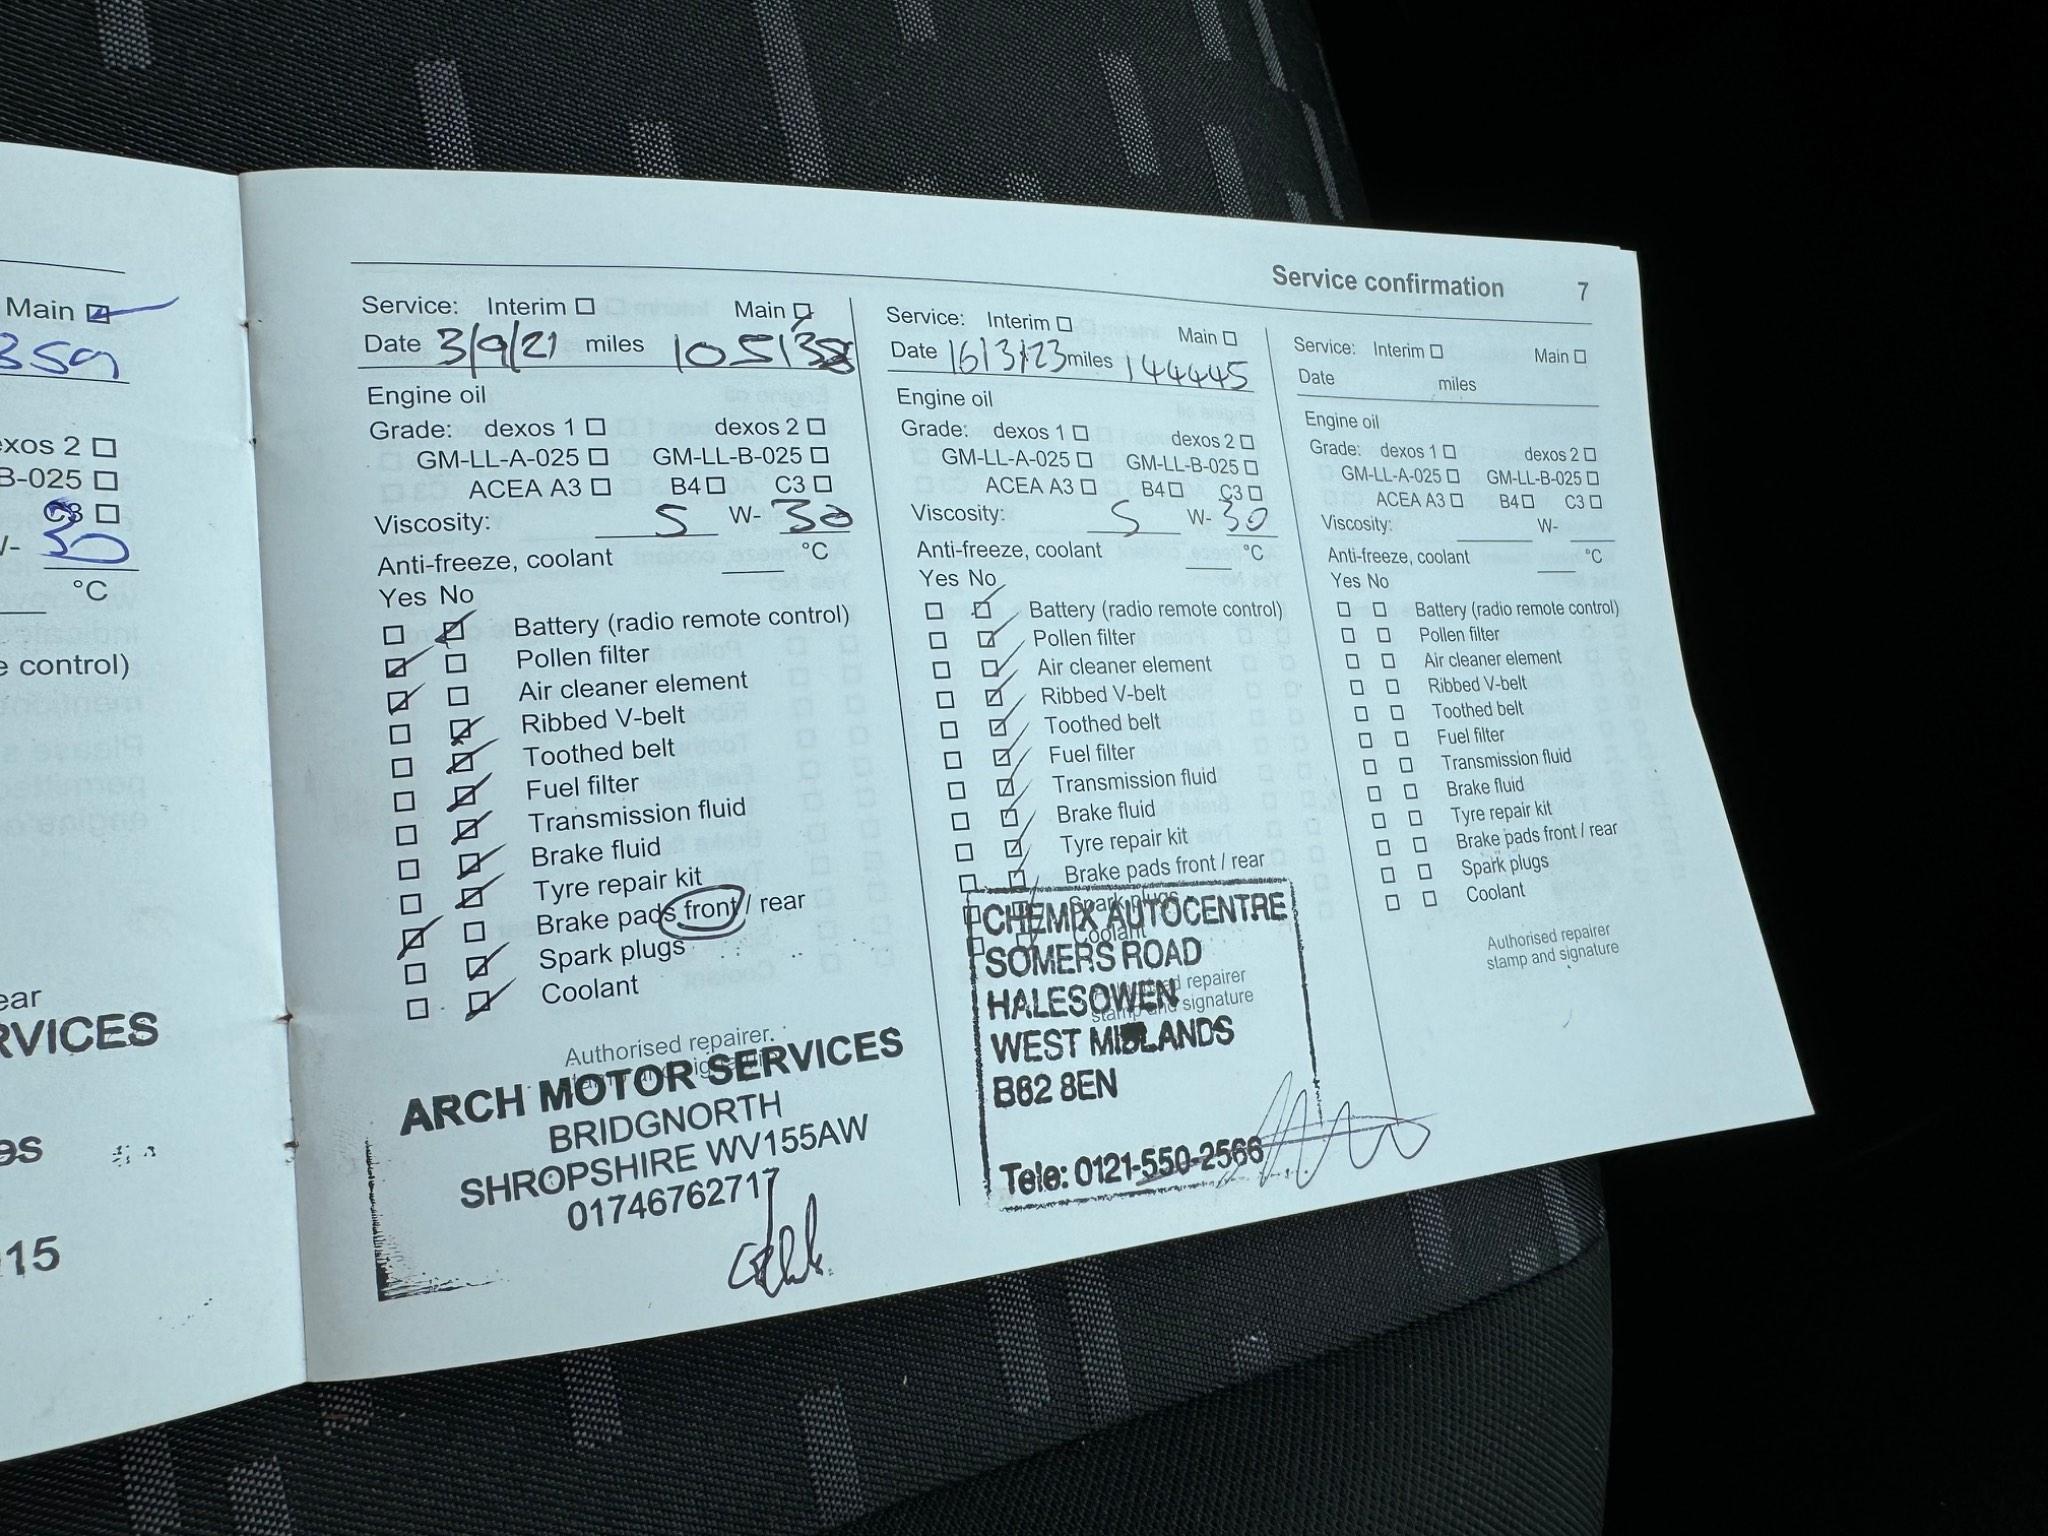 Main
359
exos 2
B-025
C3
30
°C
e control)
ear
RVICES
es
15
Service confirmation 7
Service: Interim Main
Date 3/9/21 miles 105138
Engine oil
Grade: dexos 1 dexos 2
GM-LL-A-025 GM-LL-B-025
ACEA A3 B4 C3
Viscosity: 5 W- 30
Anti-freeze, coolant °C
Yes No
Battery (radio remote control)
Pollen filter
Air cleaner element
Ribbed V-belt
Toothed belt
Fuel filter
Transmission fluid
Brake fluid
Tyre repair kit
Brake pads front / rear
Spark plugs
Coolant
Authorised repairer
ARCH MOTOR SERVICES
BRIDGNORTH
SHROPSHIRE WV155AW
01746762717
Service: Interim Main
Date 16/3/23 miles 144445
Engine oil
Grade: dexos 1 dexos 2
GM-LL-A-025 GM-LL-B-025
ACEA A3 B4 C3
Viscosity: 5 W- 30
Anti-freeze, coolant °C
Yes No
Battery (radio remote control)
Pollen filter
Air cleaner element
Ribbed V-belt
Toothed belt
Fuel filter
Transmission fluid
Brake fluid
Tyre repair kit
Brake pads front / rear
Spark plugs
Coolant
Authorised repairer
stamp and signature
CHEMIX AUTOCENTRE
SOMERS ROAD
HALESOWEN
WEST MIDLANDS
B62 8EN
Tele: 0121-550-2566
Service: Interim Main
Date miles
Engine oil
Grade: dexos 1 dexos 2
GM-LL-A-025 GM-LL-B-025
ACEA A3 B4 C3
Viscosity: W-
Anti-freeze, coolant °C
Yes No
Battery (radio remote control)
Pollen filter
Air cleaner element
Ribbed V-belt
Toothed belt
Fuel filter
Transmission fluid
Brake fluid
Tyre repair kit
Brake pads front / rear
Spark plugs
Coolant
Authorised repairer
stamp and signature